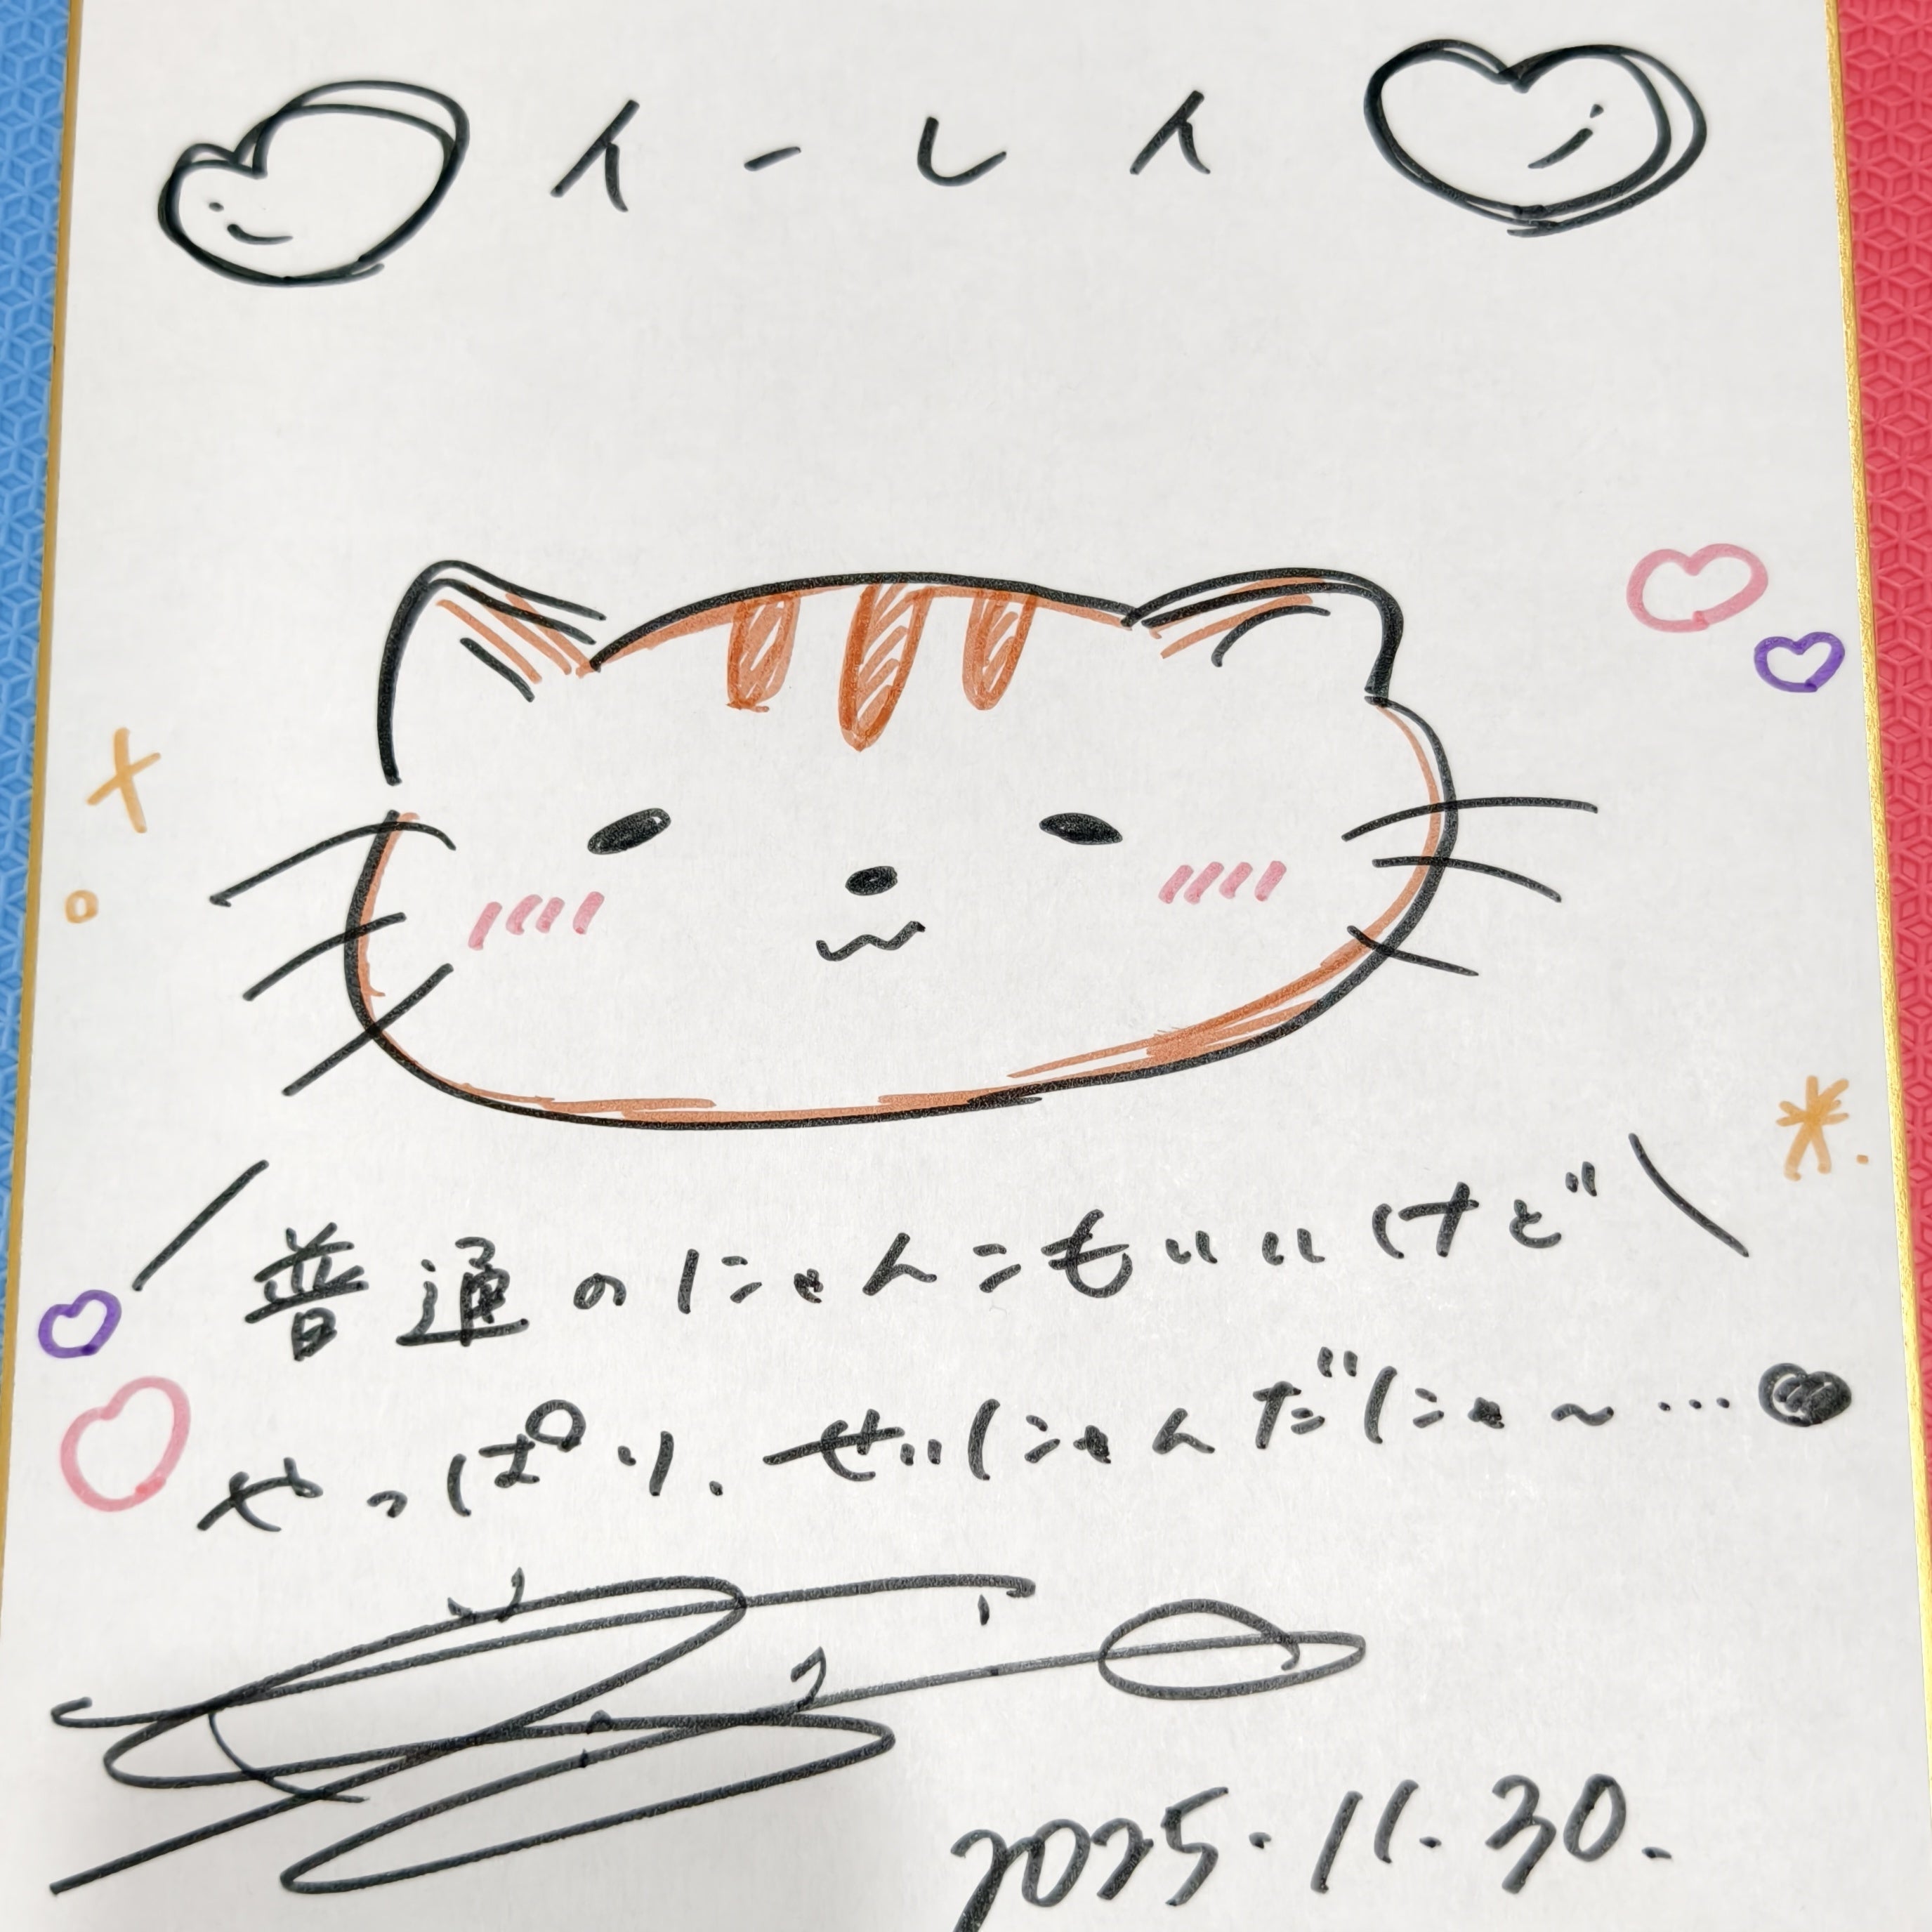 イーレイ
普通のにゃんこもいいけど
やっぱり、せいにゃんだにゃ〜…
2025.11.30.